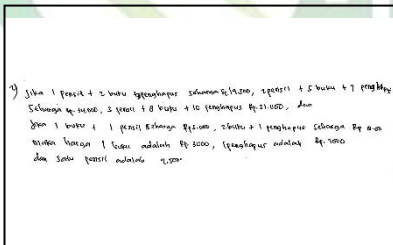 Jika 1 pensil + 2 buku + penghapus seharga Rp 14,500, 2 pensil + 5 buku + 7 penghapus
Seharga Rp. 34.000, 3 pensil + 8 buku + 10 penghapus Rp. 51.000, dan
Jika 1 buku + 1 pensil seharga Rp5.000, 2 buku + 1 penghapus seharga Rp
maka harga 1 buku adalah Rp 3000, 1 penghapus adalah Rp. 2000
dan satu pensil adalah 2,500